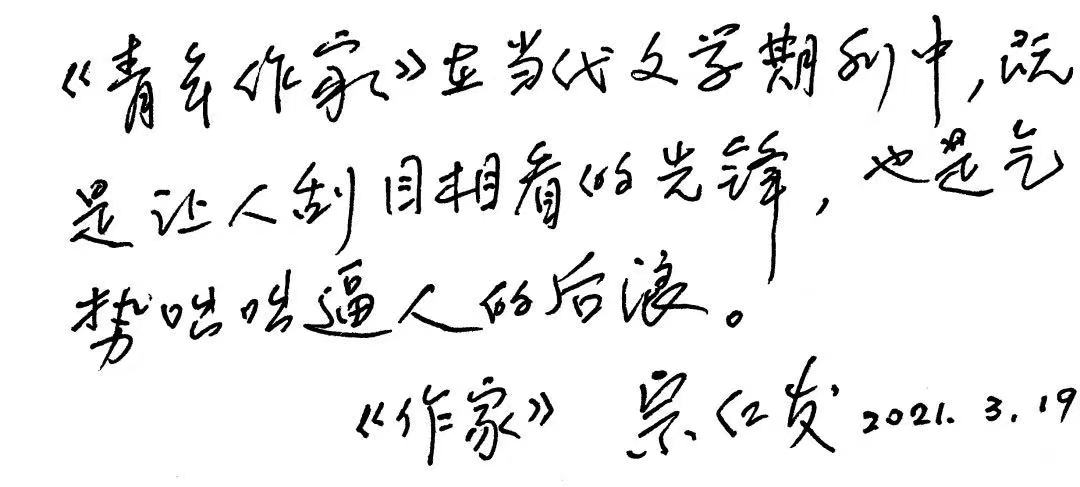 《青年作家》在当代文学期刊中,既
是让人刮目相看的先锋,也是气
势咄咄逼人的后浪。
《作家》 宗仁发 2021.3.19